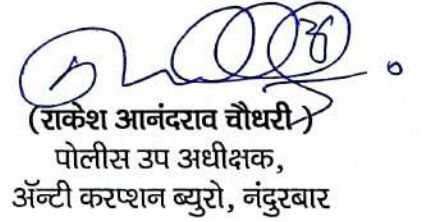 (राकेश आनंदराव चौधरी)
पोलीस उप अधीक्षक,
ॲन्टी करप्शन ब्युरो, नंदुरबार